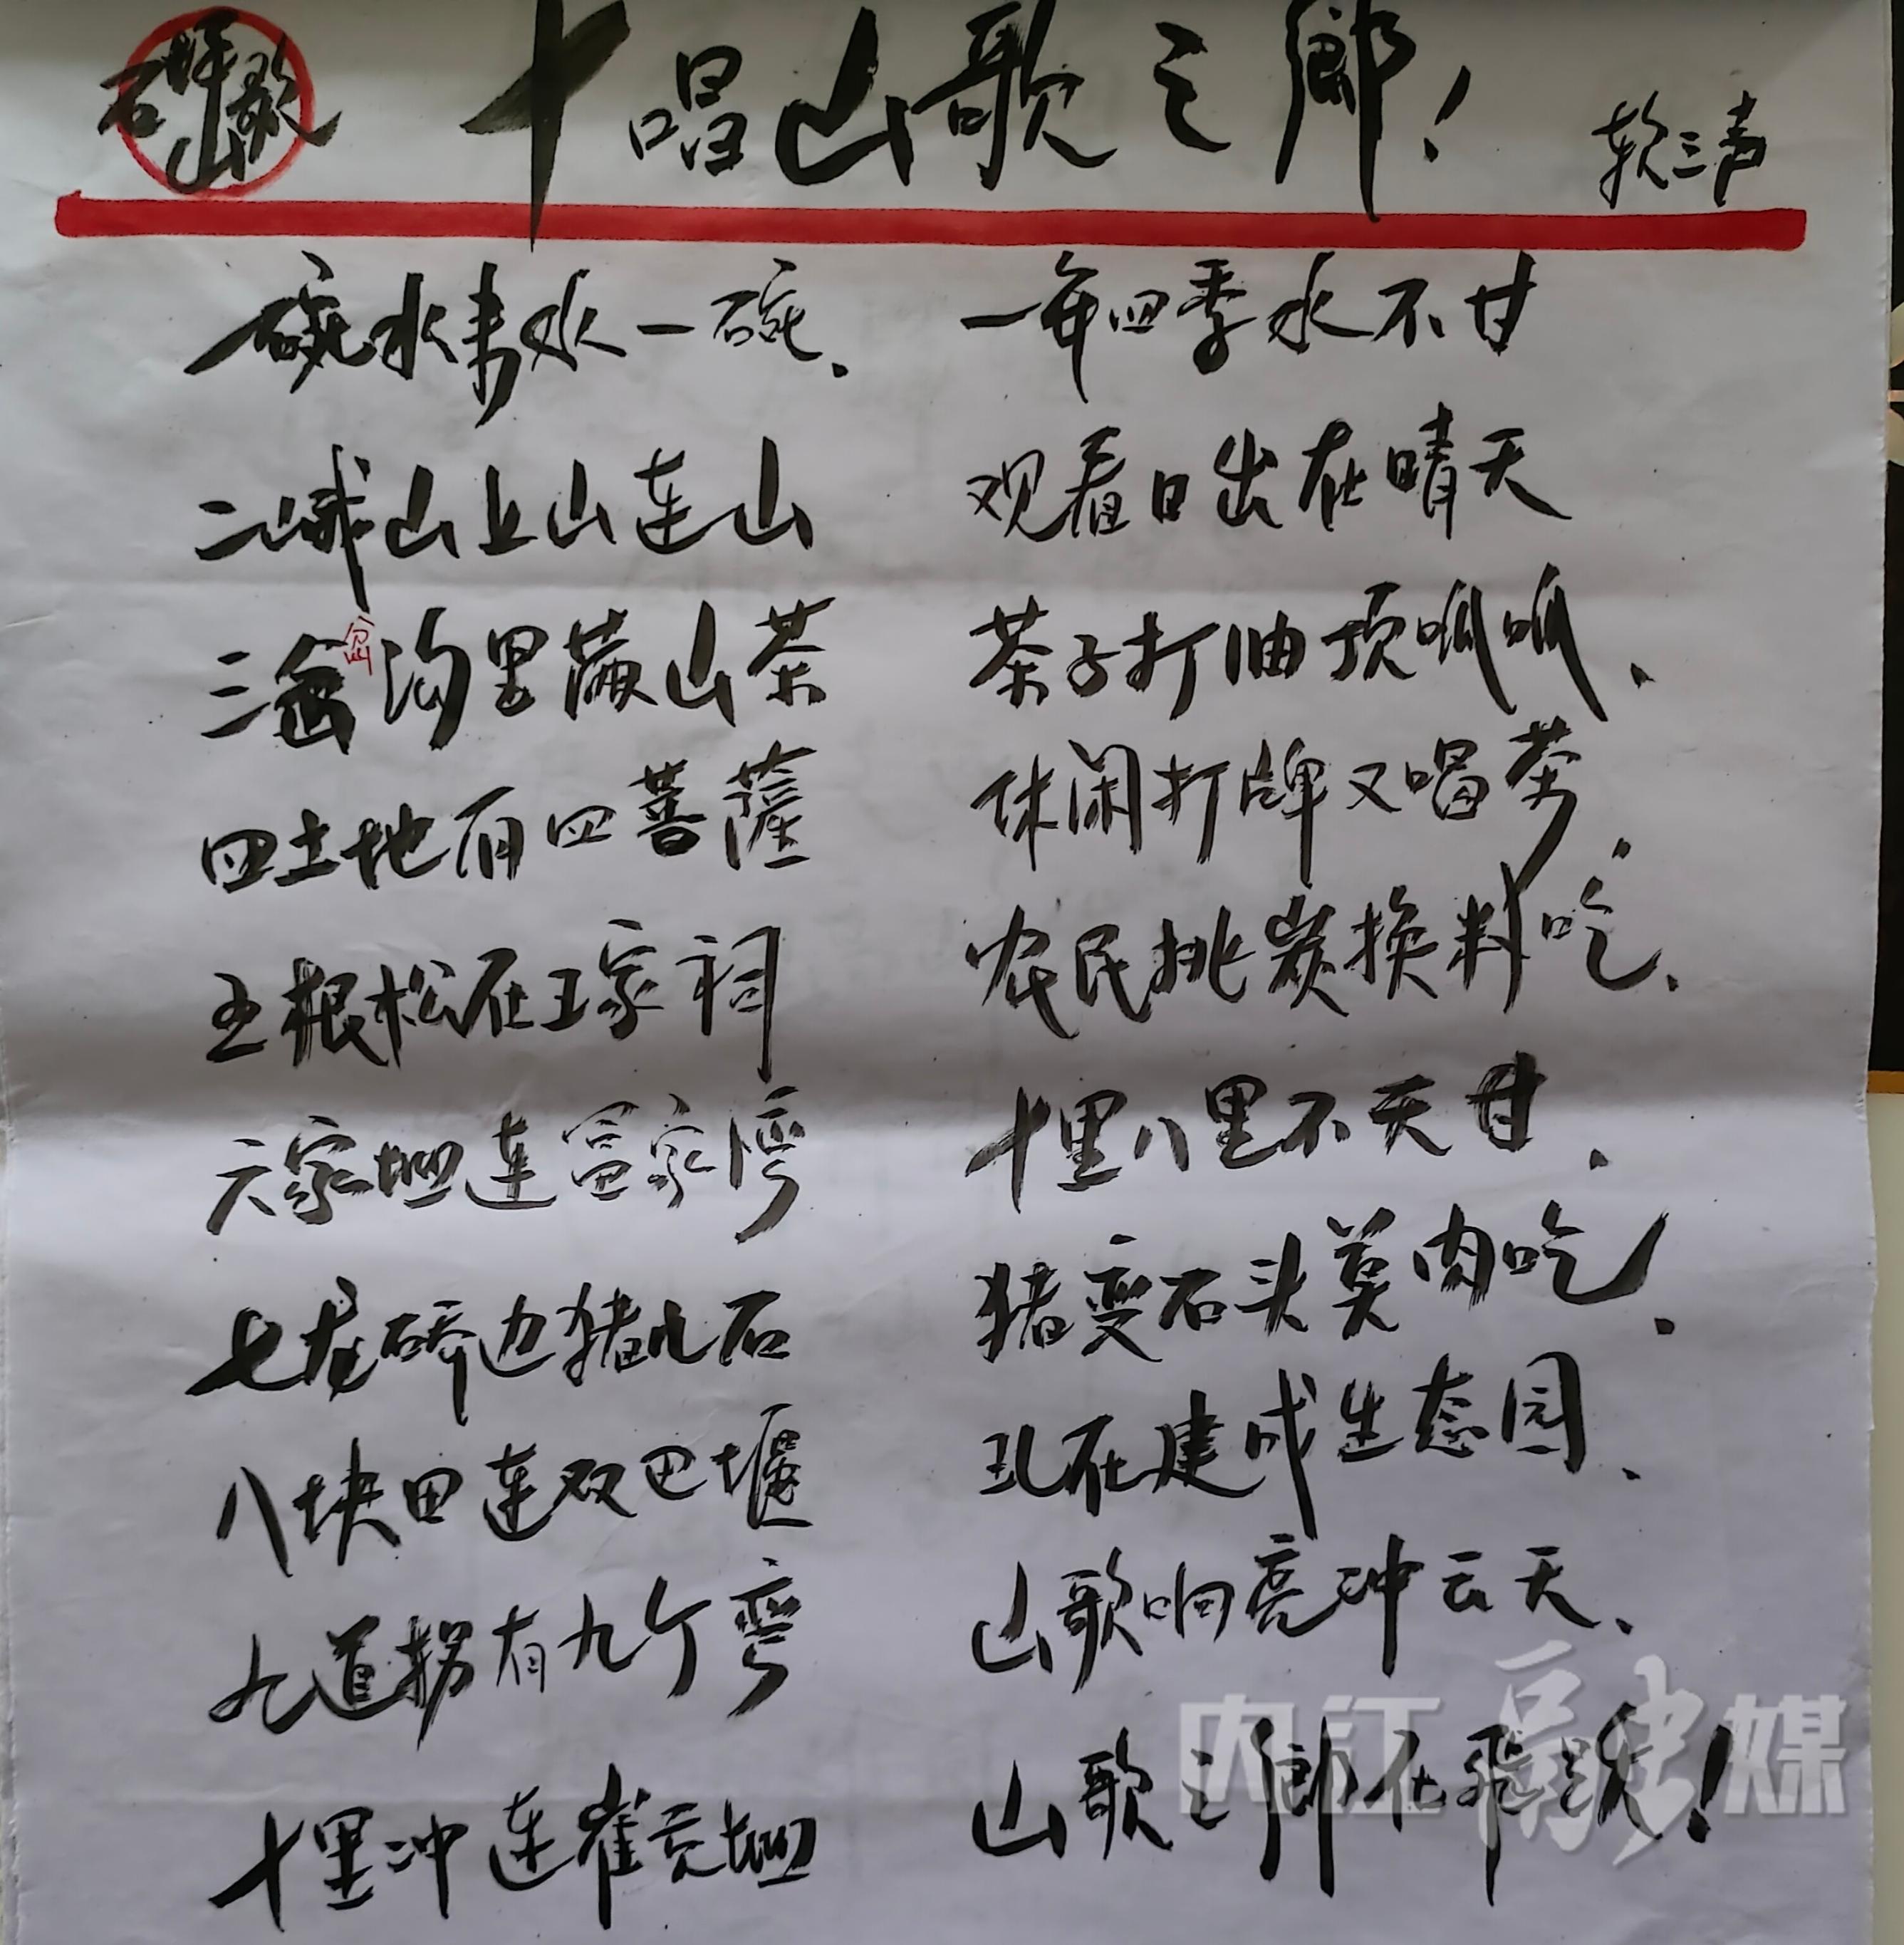 石坪山歌
十唱山歌之鄉！
一碗水来水一碗、 一年四季水不甘
二峨山上山连山 观看日出在晴天
岔
三岔沟里满山茶 茶子打油顶呱呱、
四土地有四菩薩 休闲打牌又喝茶、
五根松在王家祠 农民挑炭换料吃、
六家坳连富家湾 十里八里不天甘、
七龙桥边猪儿石 猪变石头莫肉吃、
八块田连双巴堰 现在建成生态园、
九道拐有九个弯 山歌响亮冲云天、
十里冲连崔贡坳 山歌之鄉在飛跃！
内江融媒